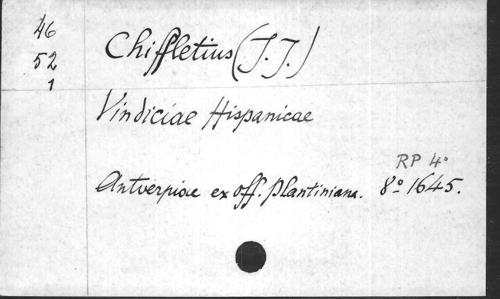 46
52
1
Chiffletius (J. J.)
Vindiciae Hispanicae
RP 4°
Antverpiae ex off. Plantiniana. 8° 1645.